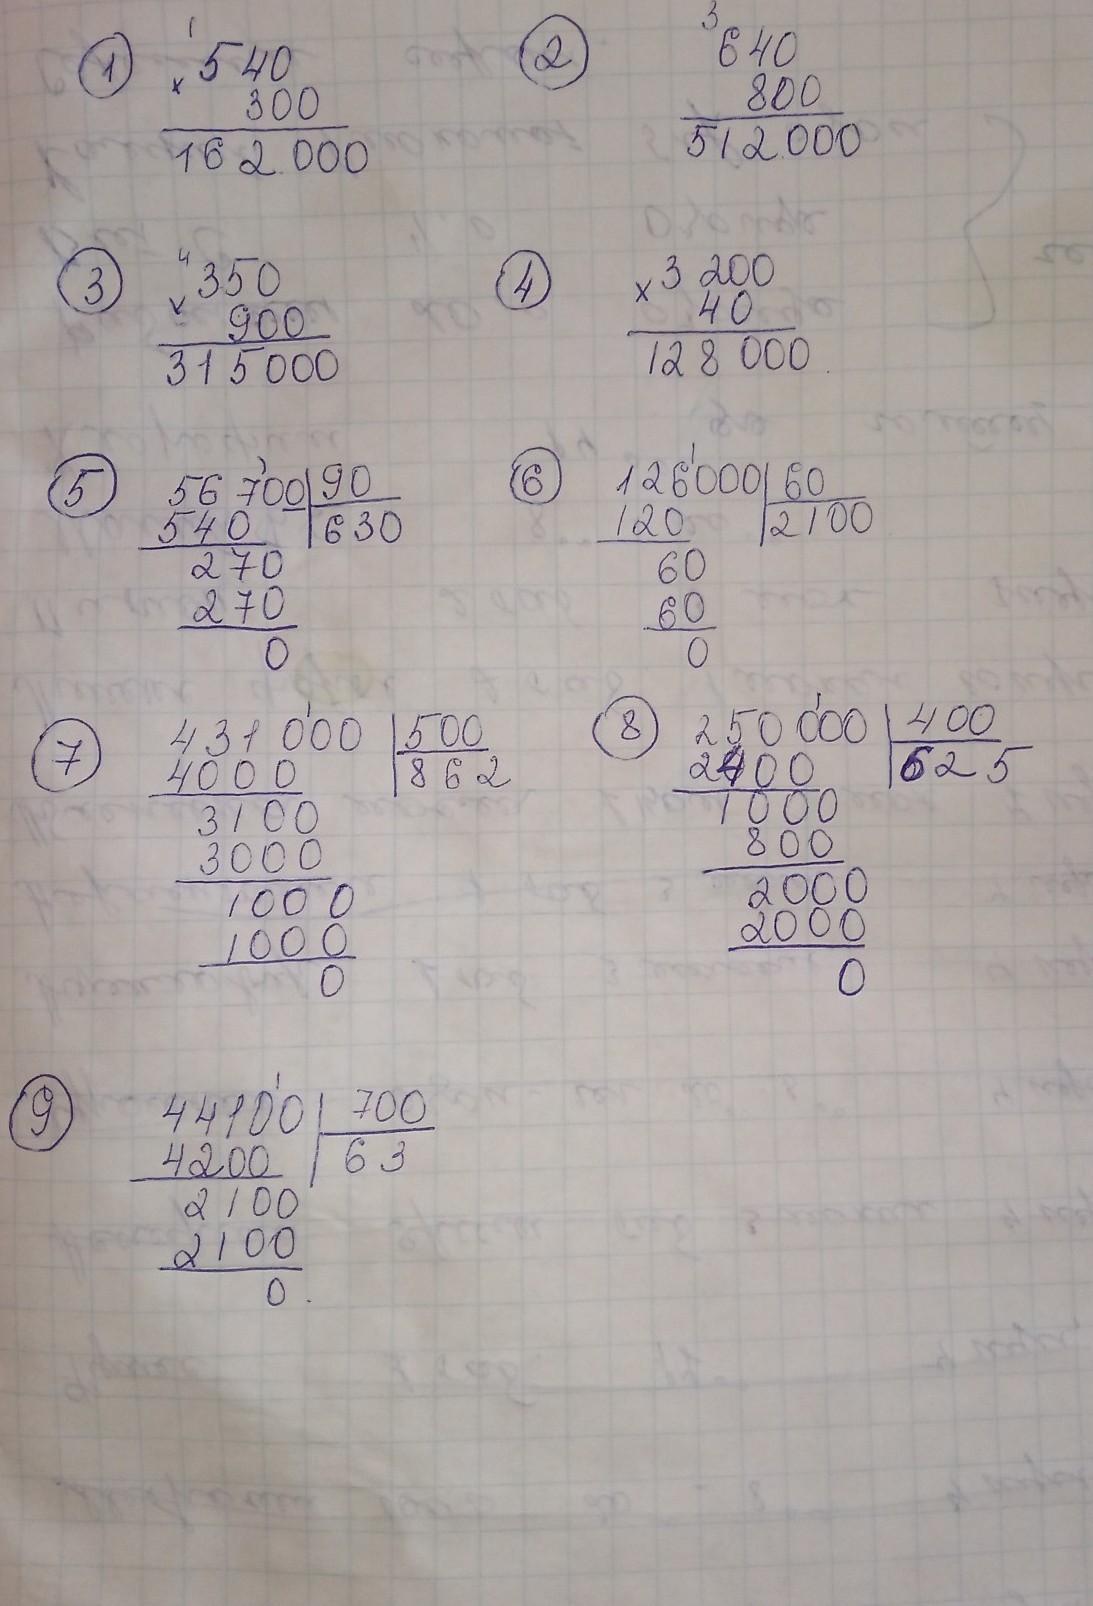 1 540
× 300
162.000
2 640
800
512.000
3 350
× 900
315000
4 × 3 200
40
128 000.
5 56 700 | 90
540 | 630
270
270
0
6 126000 | 60
120 | 2100
60
60
0
7 431 000 | 500
4000 | 862
3100
3000
1000
1000
0
8 250 000 | 400
2400 | 625
1000
800
2000
2000
0
9 44100 | 700
4200 | 63
2100
2100
0.